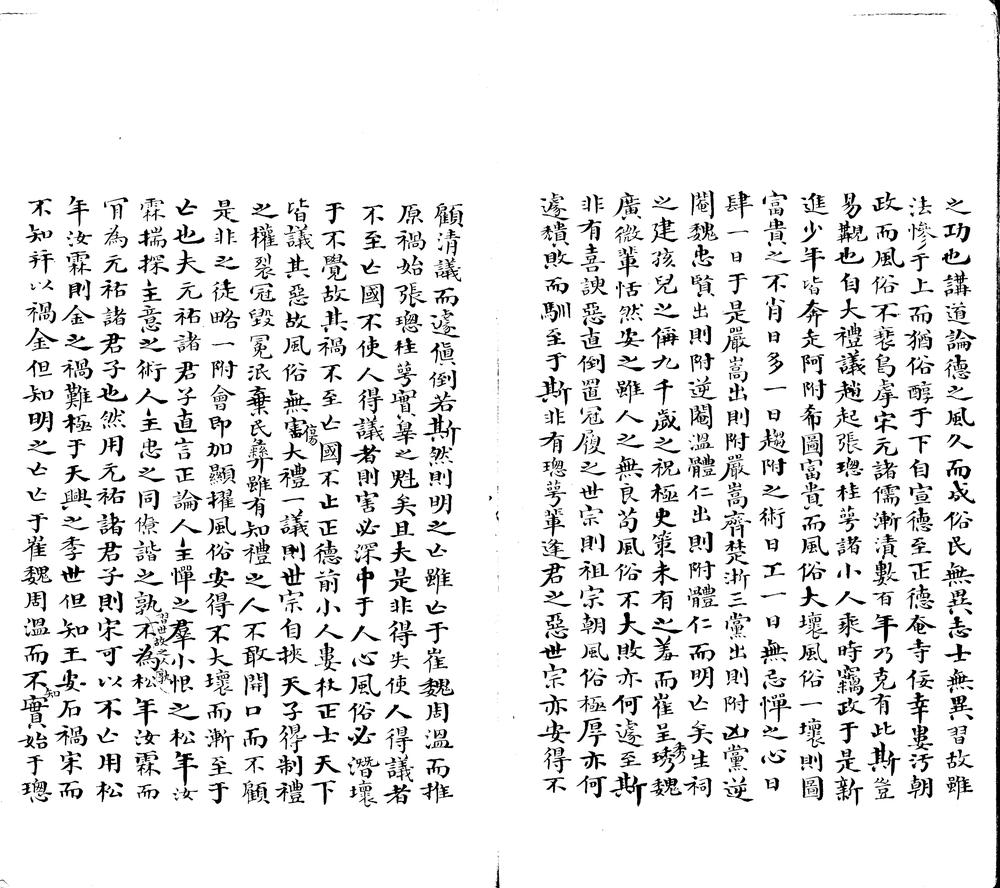 之功也講道論德之風久而成俗民無異志士無異習故雖
法慘于上而猶俗醇于下自宣德至正德奄寺佞幸婁污朝
政而風俗不衰烏虖宋元諸儒漸漬數百年乃克有此斯豈
易覯也自大禮議起張璁桂萼諸小人乘時竊政于是新
進少年皆奔走阿附希圖富貴而風俗大壞風俗一壞則圖
富貴之不肖日多一日趨附之術日工一日無忌憚之心日
肆一日于是嚴嵩出則附嚴嵩齊楚浙三黨出則附凶黨逆
閹魏忠賢出則附逆閹溫體仁出則附體仁而明亡矣生祠
之建孩兒之偁九千歲之祝極史策未有之羞而崔呈琇秀魏
廣微輩恬然安之雖人之無良苟風俗不大敗亦何遽至斯
非有喜諛惡直倒置冠履之世宗則祖宗朝風俗極厚亦何
遽穨敗而馴至于斯非有璁萼輩逢君之惡世宗亦安得不
顧清議而遽傎倒若斯然則明之亡雖亡于崔魏周溫而推
原禍始張璁桂萼寔皋之魁矣且夫是非得失使人得議者
不至亡國不使人得議者則害必深中于人心風俗必潛壞
于不覺故其禍不至亡國不止正德前小人婁杖正士天下
皆議其惡故風俗無害傷大禮一議則世宗自挾天子得制禮
之權裂冠毀冕泯棄民彝雖有知禮之人不敢開口而不顧
是非之徒略一附會即加顯擢風俗安得不大壞而漸至于
亡也夫元祐諸君子直言正論人主憚之羣小恨之松年汝
霖揣探主意之術人主忠之同僚諧之孰不習世故之人孰不為松年汝霖而
肎為元祐諸君子也然用元祐諸君子則宋可以不亡用松
年汝霖則金之禍難極于天興之季世但知王安石禍宋而
不知幷以禍金但知明之亡亡于崔魏周溫而不知實始于璁